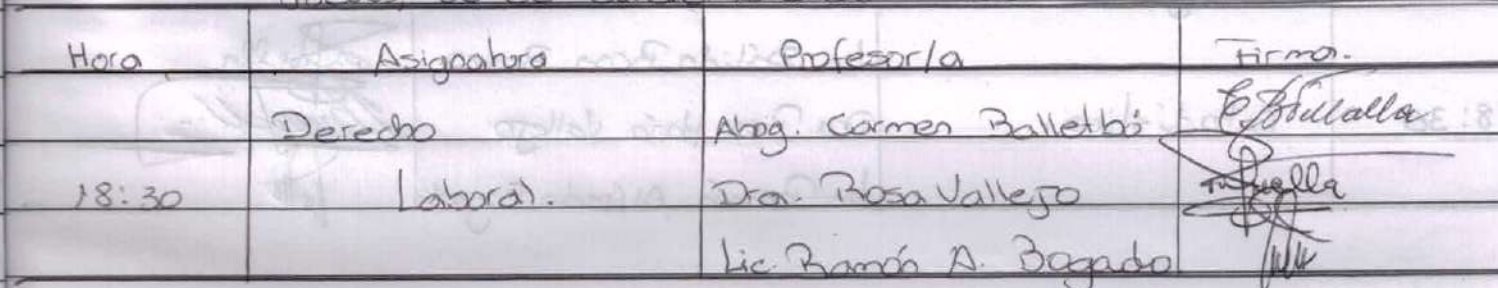 Hora Asignatura Profesor/a Firma.
Derecho Abog. Carmen Balletbó
18:30 Laboral. Dra. Rosa Vallejo
Lic. Ramón A. Bogado